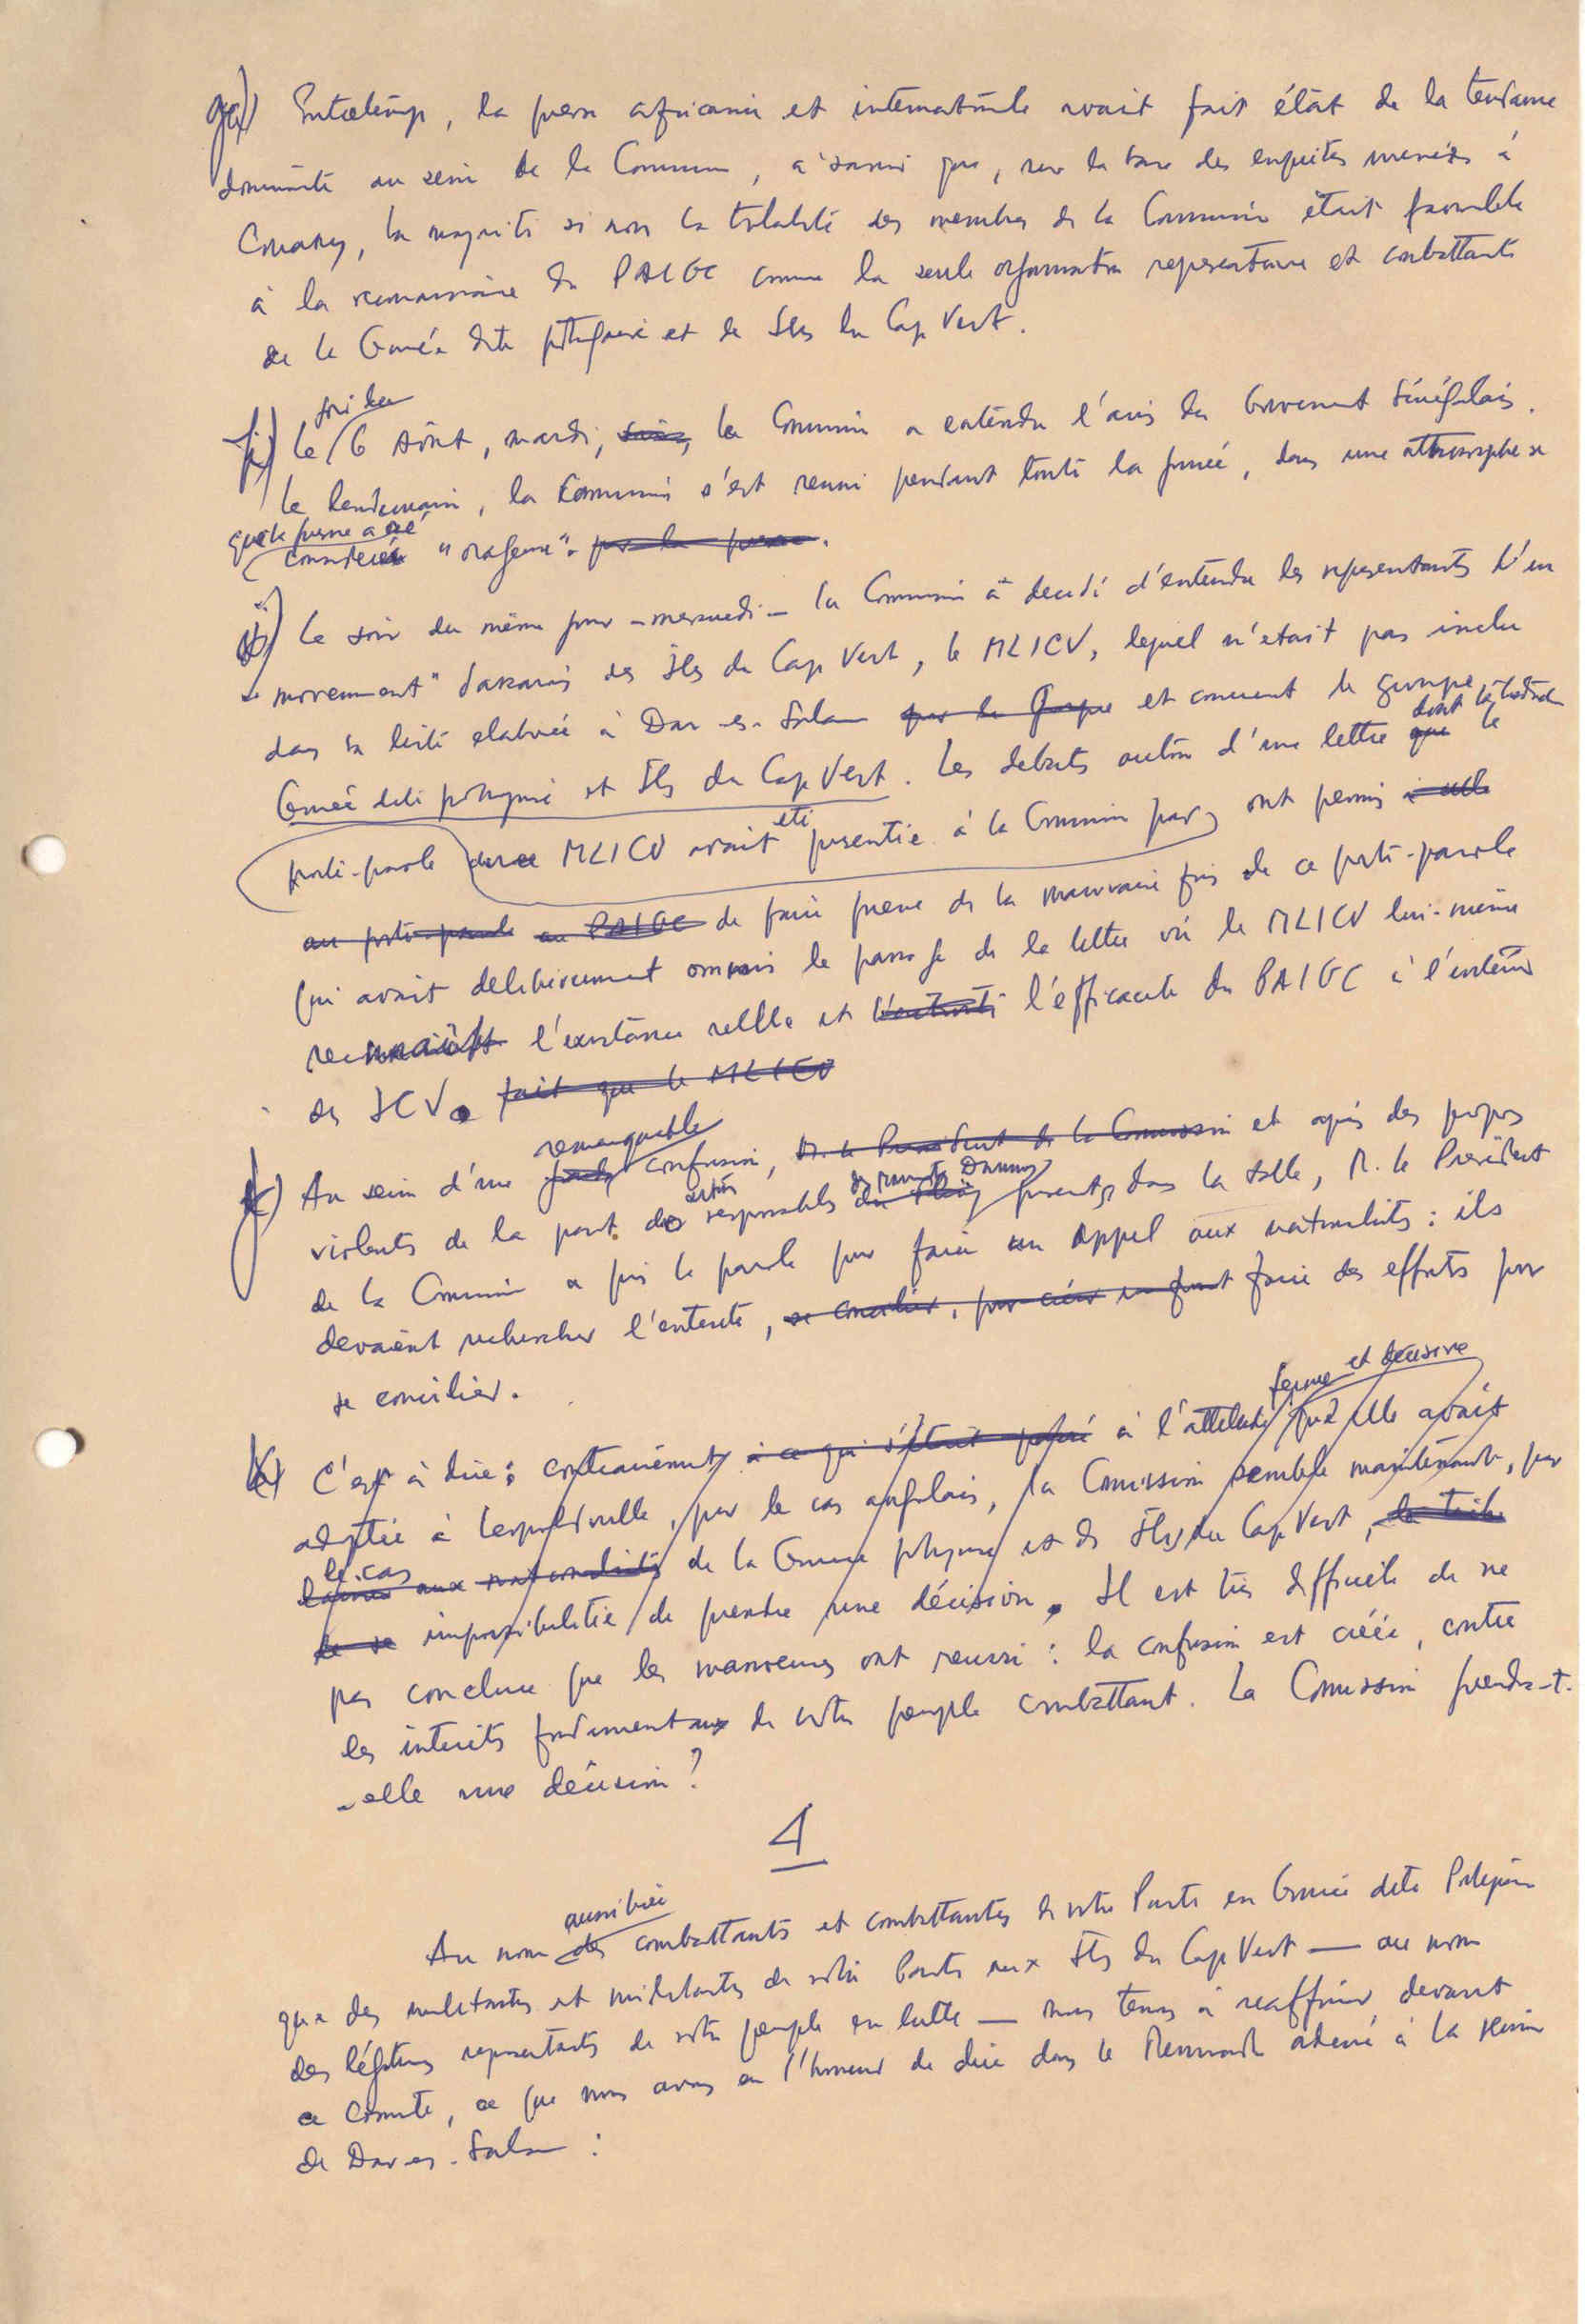 Entretemps, la presse africaine et internationale avait fait état de la tendance
dominante au sein de la Commission, à savoir que, sur la base des enquêtes menées à
Conakry, la majorité si non la totalité des membres de la Commission était favorable
à la reconnaissance du PAIGC comme la seule organisation representative et combattante
de la Guinée dite portugaise et des Iles du Cap Vert.
soir du
Le 6 Août, mardi, soir, la Commission a entendu l'avis du Gouvernement Sénégalais.
Le lendemain, la Commission s'est reuni pendant toute la journée, dans une atmosphere
que la presse a
considerée "orageuse". par la presse.
Le soir du même jour - mercredi - la Commission a decidé d'entendre les representants d'un
"mouvement" dakarois des Iles du Cap Vert, le MLICV, lequel n'etait pas inclu
dans la liste elaborée à Dar-es-Salam par le groupe et concernant le groupe
Guinée dite portugaise et Iles du Cap Vert. Les debats autour d'une lettre que dont le
porte-parole du MLICV avait eté presentée à la Commission par ont permis à celle
au porte-parole au PAIGC de faire preuve de la mauvaise fois de ce porte-parole
qui avait deliberement ommis le passage de la lettre où le MLICV lui-même
l'existance reelle et l'efficacité du PAIGC à l'intérieur
des ICV. fait que le MLICV
remarquable
Au sein d'une confusion, M. le President de la Commission et après des propos
violents de la part des certains responsables presents dans la salle, M. le President
de la Commission a pris la parole pour faire un appel aux nationalistes: ils
devaient rechercher l'entente, se concilier, pour créer un front faire des efforts pour
se concilier.
ferme et decisive
C'est à dire: contrairement à ce qui s'était passé à l'attitude qu'elle avait
adoptée à Leopoldville, pour le cas angolais, la Commission semble maintenant, pour
le cas aux nationalistes de la Guinée portugaise et des Iles du Cap Vert,
de se impossibilitée de prendre une décision. Il est très difficile de ne
pas conclure que les manoeuvres ont reussi: la confusion est créée, contre
les interêts fondamentaux de notre peuple combattant. La Commission prendra-t-
-elle une décision?
4
aussi bien
Au nom des combattants et combattantes de notre Parti en Guinée dite Portugaise
que des militants et militantes de notre Parti aux Iles du Cap Vert — au nom
des légitimes representants de notre peuple en lutte — nous tenons à reaffirmer devant
ce Comité, ce que nous avons eu l'honneur de dire dans le Memorandum adressé à la réunion
de Dar-es-Salam :